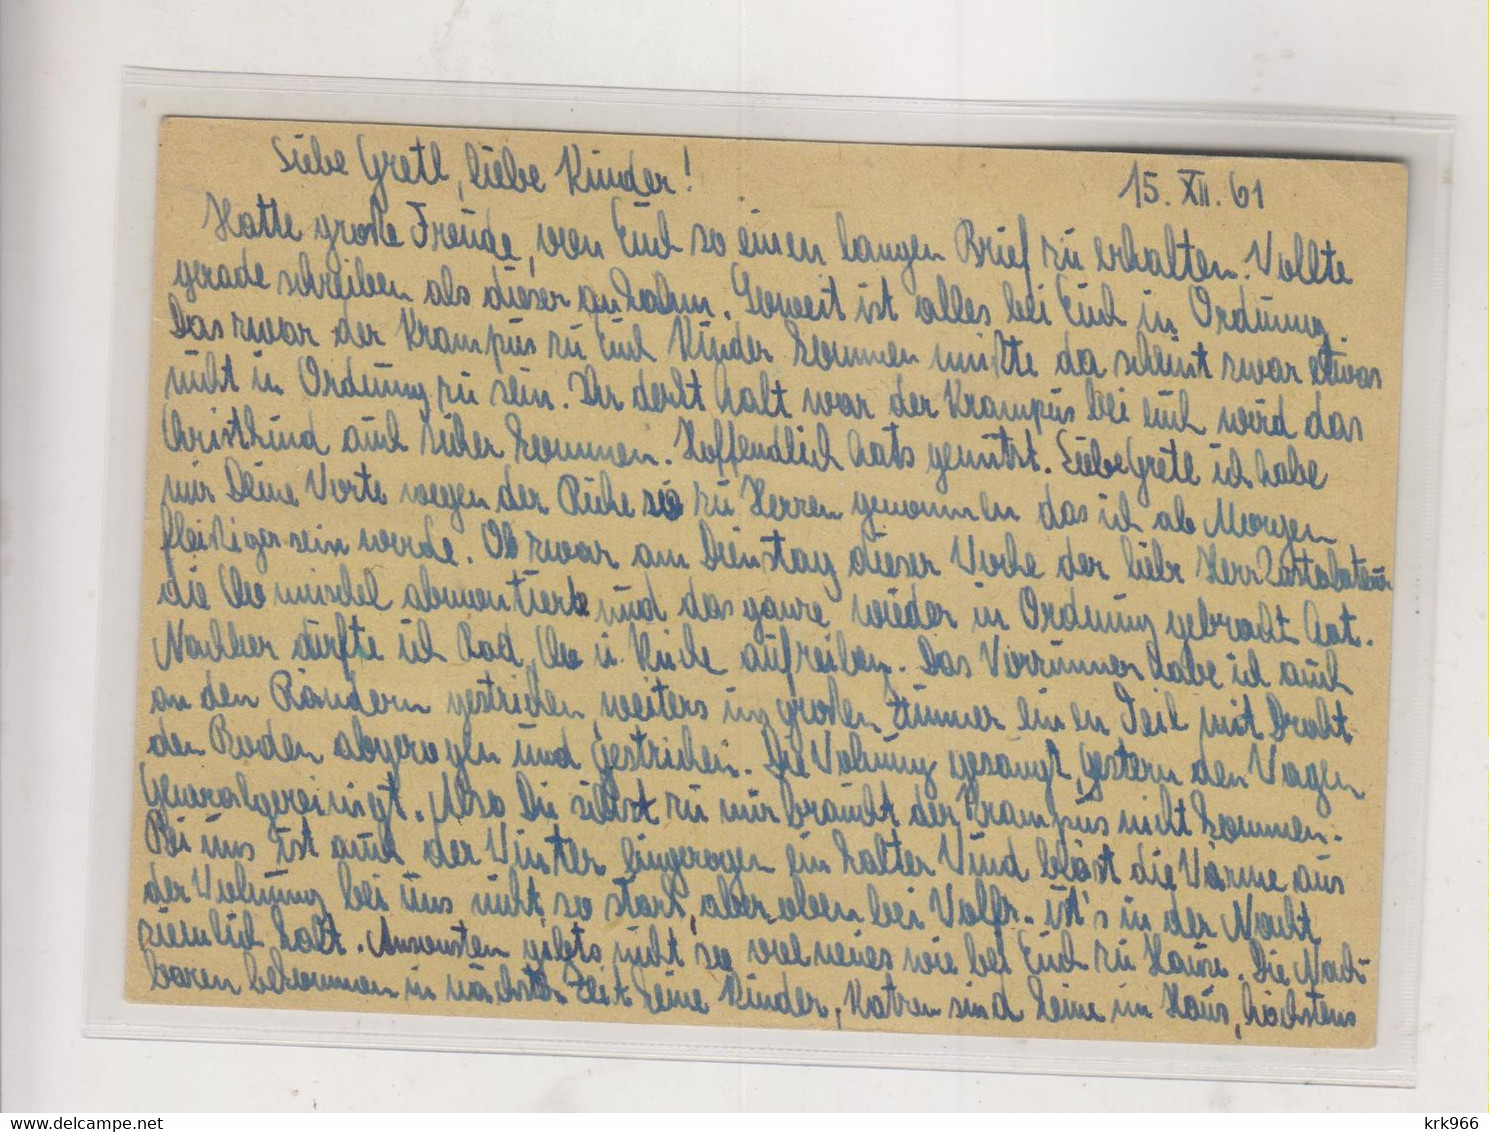 Liebe Gretl, liebe Kinder! 15. XII. 61
Hatte große Freude, von Euch so einen langen Brief zu erhalten. Wollte
gerade schreiben als dieser ankahm. Soweit ist alles bei Euch in Ordnung.
Das zwar der Krampus zu Euch Kinder kommen mußte da scheint zwar etwas
nicht in Ordnung zu sein. Ihr denkt halt war der Krampus bei euch wird das
Christkind auch sicher kommen. Hoffendlich hats genützt. Liebe Gretl ich habe
mir Deine Worte wegen der Ruhe so zu Herzen genommen das ich ab Morgen
fleißiger sein werde. Ob zwar am Dienstag dieser Woche der liebe Herr
die Clo muschel abmontierte und das ganze wieder in Ordnung gebracht hat.
Nachher dürfte ich Bad, Clo u. Küche aufreiben. Das Vorzimmer habe ich auch
an den Rändern gestrichen weiters im großen Zimmer einen Teil mit Draht
den Boden abgezogen und gestrichen. Die Wohnung gesaugt, gestern den Wagen
Generalgereiningt. Also Du siehst zu mir braucht der Krampus nicht kommen.
Bei uns ist auch der Winter eingezogen ein kalter Wind bläst die Wärme aus
der Wohnung bei uns nicht so stark, aber oben bei Wolfr. ist's in der Nacht
ziemlich kalt. Ansonsten gibts nicht so viel neues wie bei Euch zu Hause. Die Nach-
baren bekommen in nächster Zeit keine Kinder, Katzen sind keine im Haus, höchstens
krk966